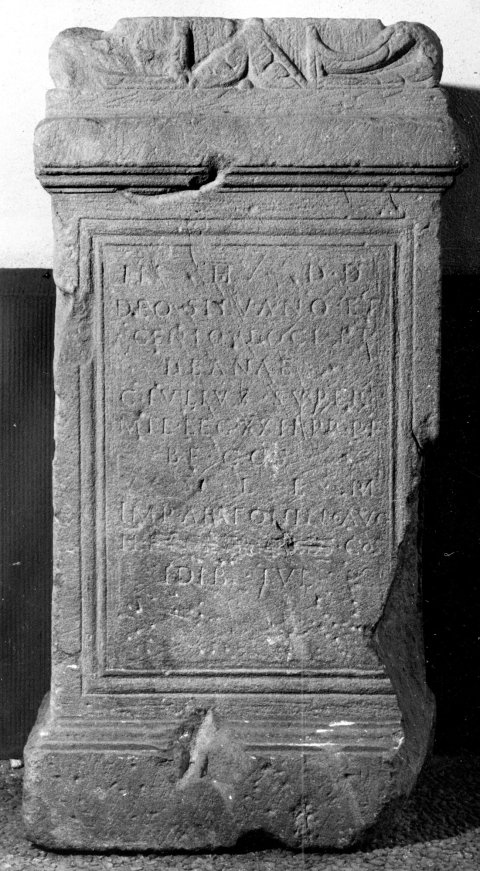 IN H D D
DEO SILVANO ET
GENIO LOCI ET
DEANAE
C IVLIVS SVPER
MIL LEG XXII PR P F
BF COS
L L M
IMP ANTONINO AVG
II COS
IDIB IVL